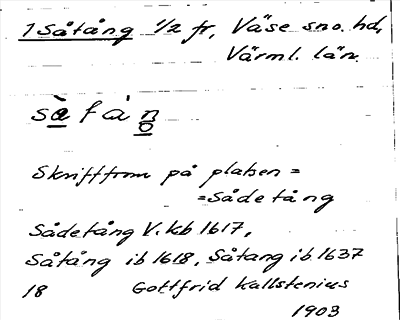 1 Såtång 1/2 fr, Väse sno. hd,
Värml. län.
Skriftform på platsen =
=Sådetång
Sådetång V. kb 1617,
Såtång ib 1618, Såtang ib 1637
18 Gottfrid Kallstenius
1903